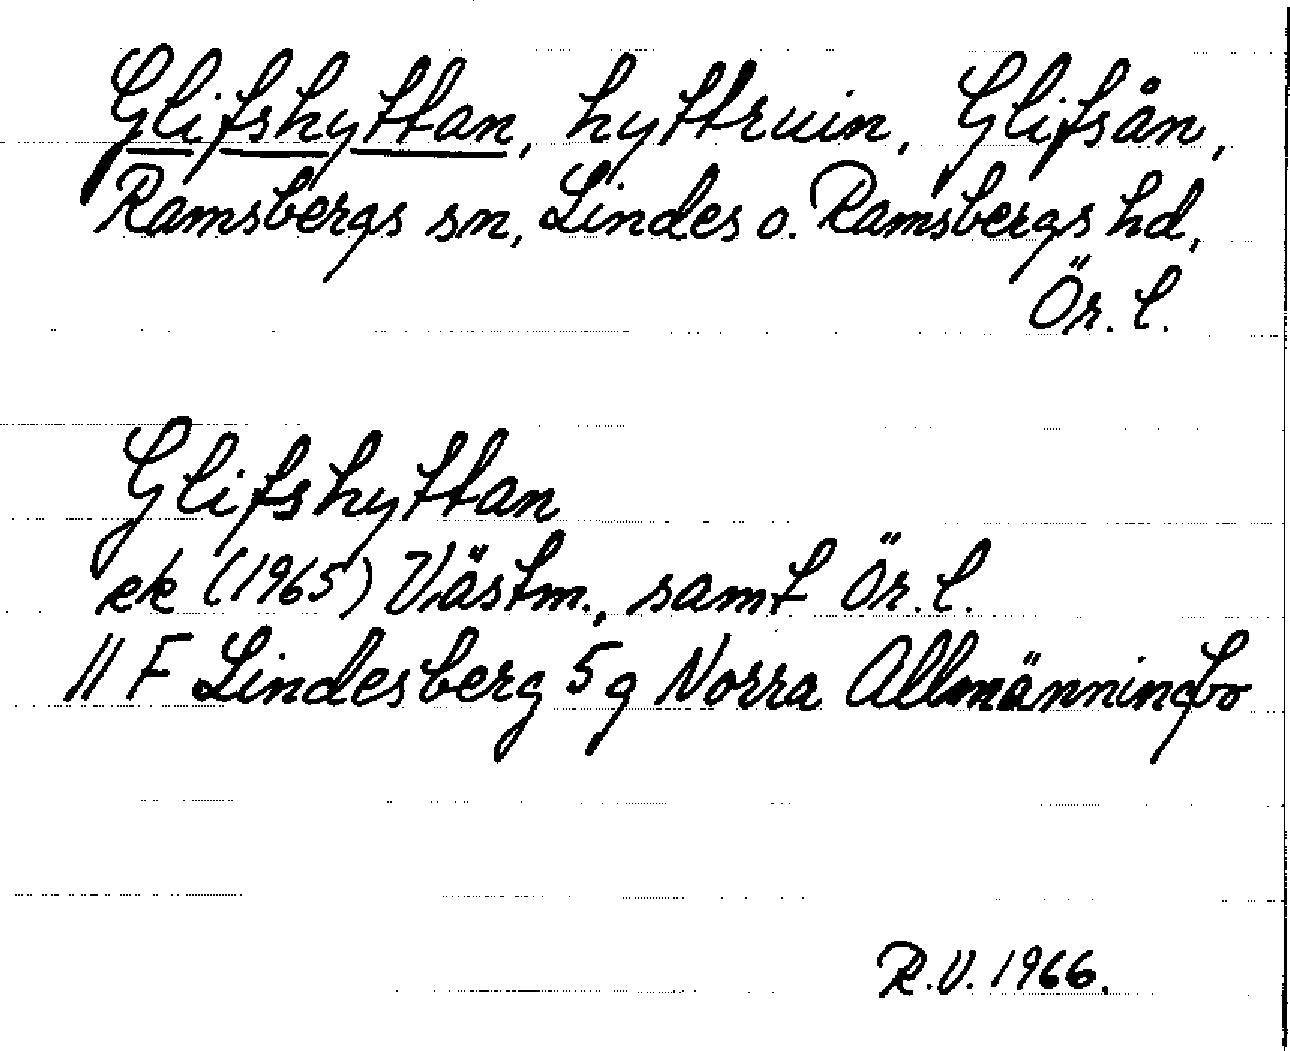 Glifshyttan, hyttruin, Glifsån,
Ramsbergs sn, Lindes o. Ramsbergs hd,
Ör. l.
Glifshyttan
ek (1965) Västm., samt Ör. l.
11 F Lindesberg 5 g Norra Allmänningbo
R.V. 1966.